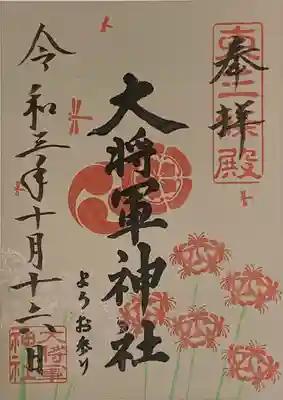 東三條殿
奉拝
大将軍神社
ようお参り
令和三年十月十六日
大将軍
神社